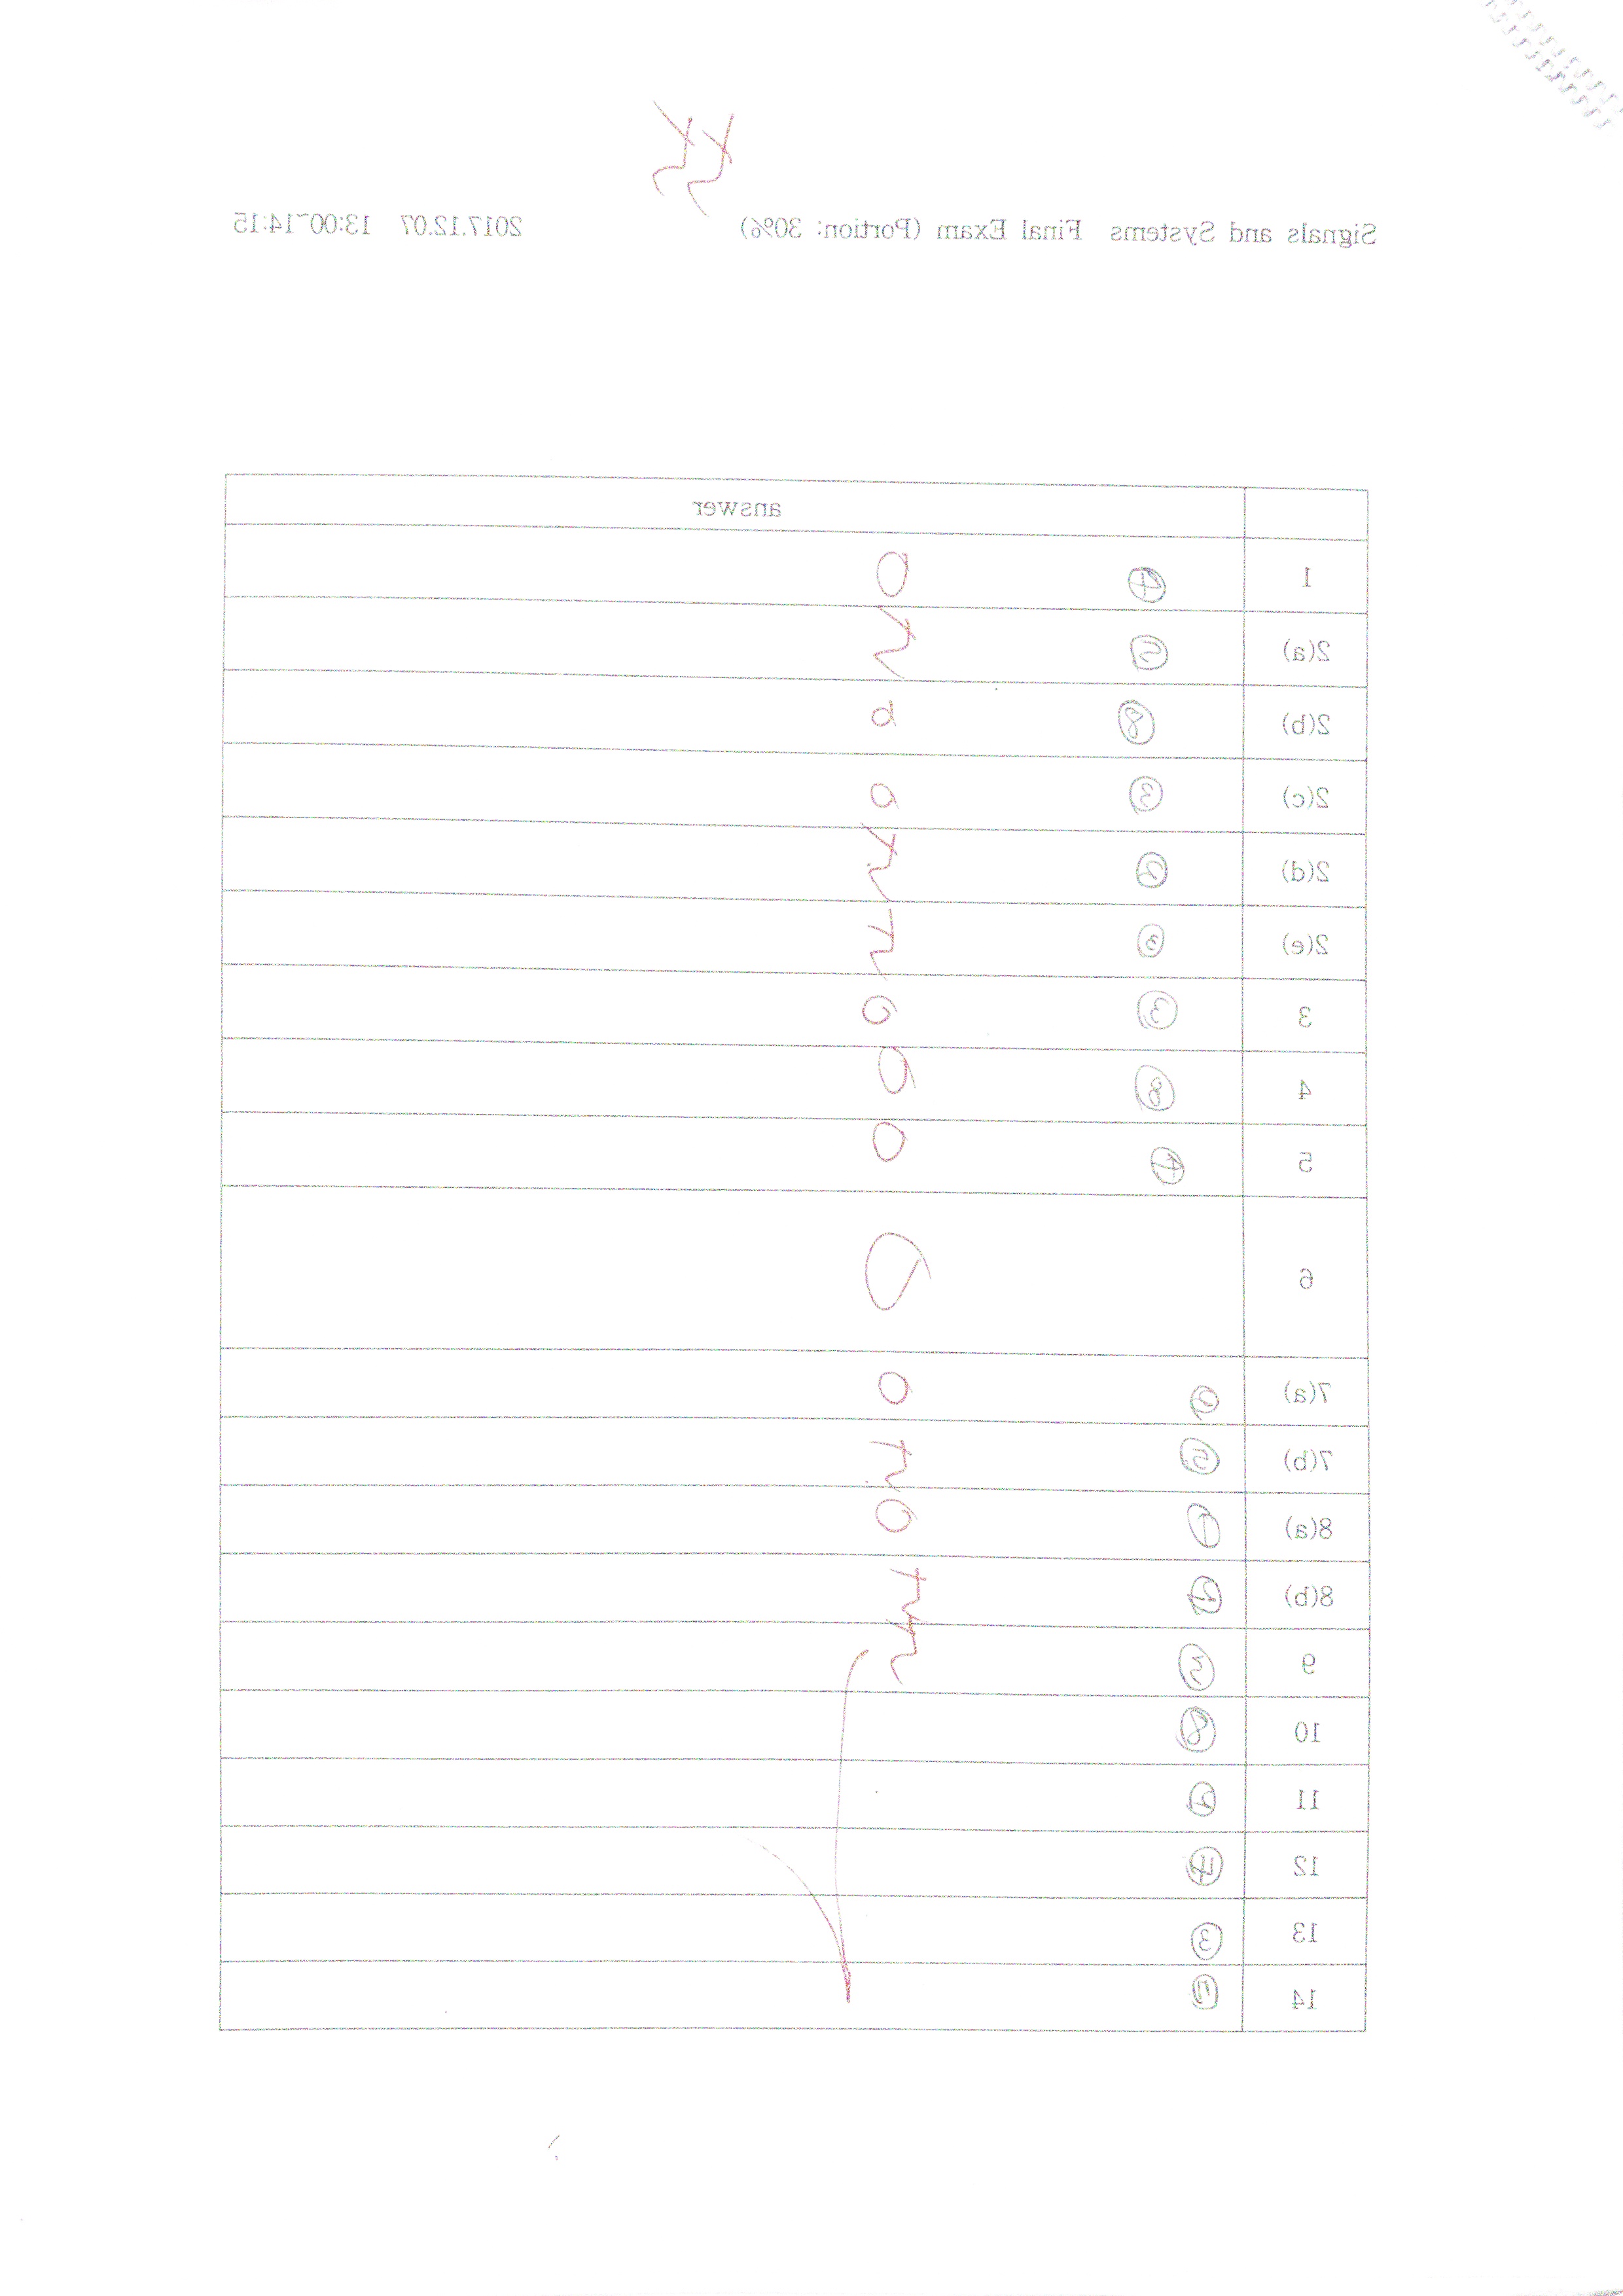 Signals and Systems Final Exam (Portion: 30%) 2017.12.07 13:00~14:15
answer
1 ④
2(a) ⑤
2(b) ⑧
2(c) ③
2(d) ②
2(e) ③
3 ③
4 ⑧
5 ④
6
7(a) ②
7(b) ⑤
8(a) ①
8(b)
9 ③
10 ⑧
11
12 ④
13 ③
14